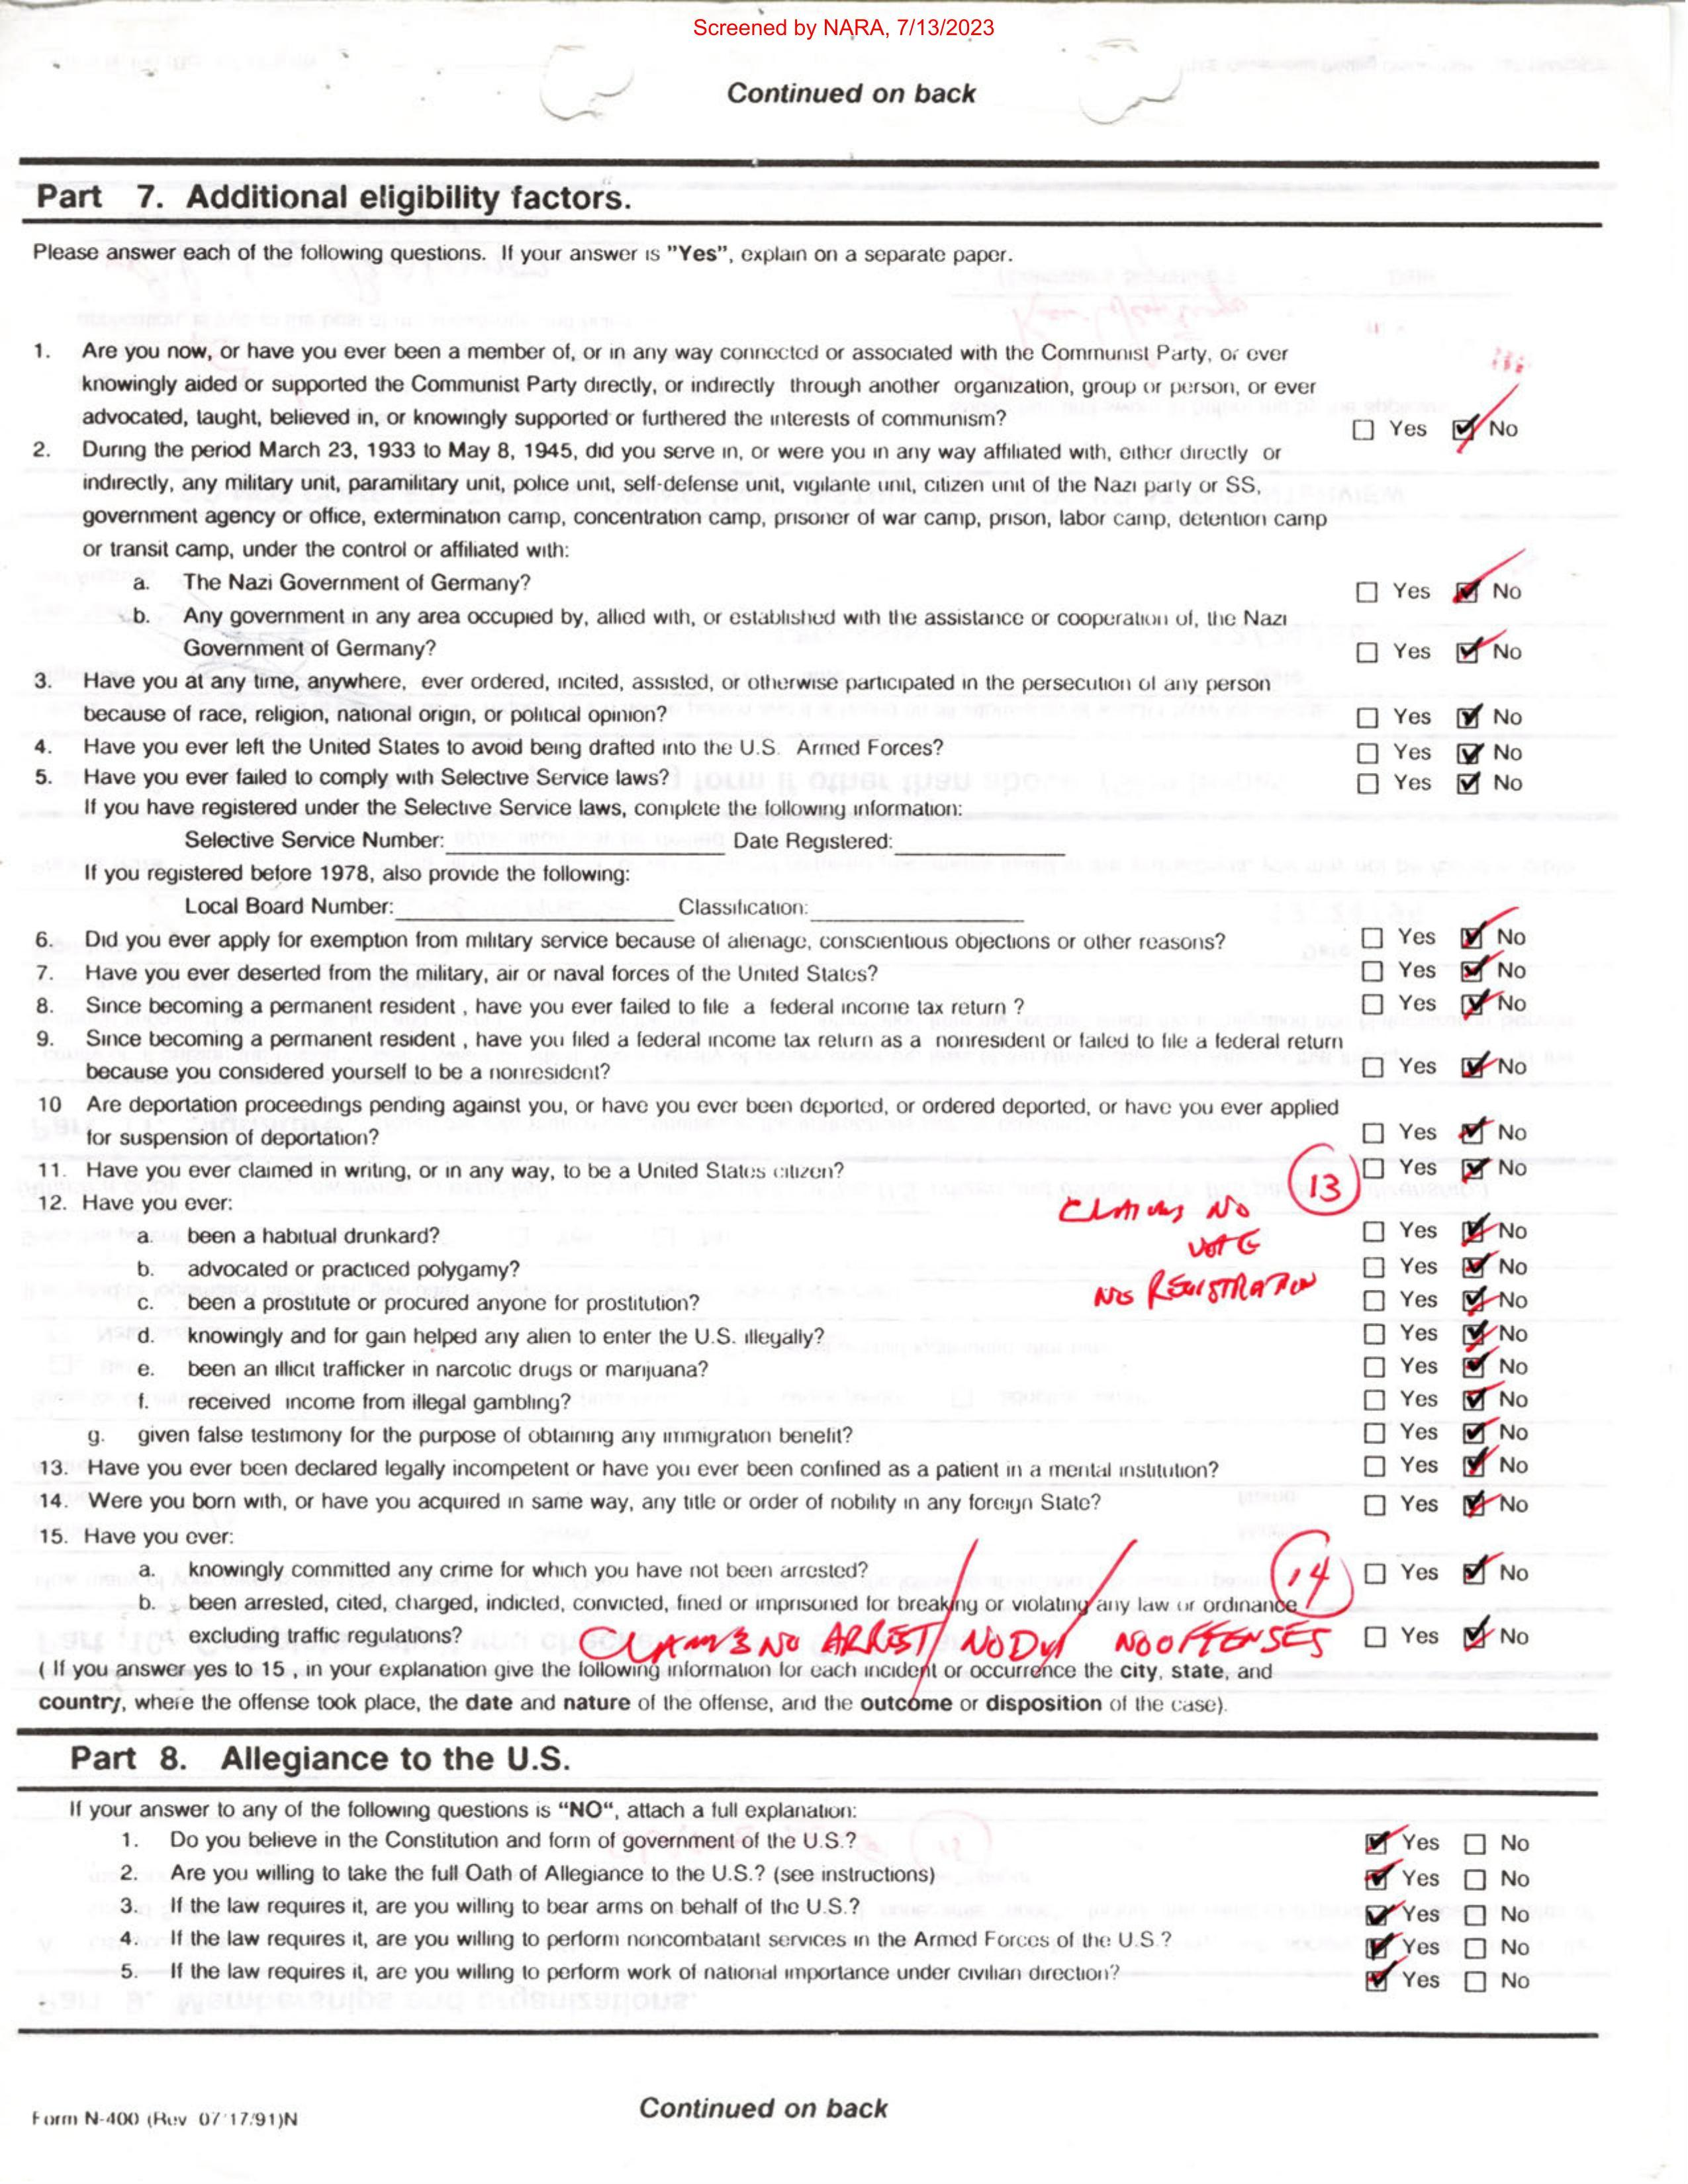 Screened by NARA, 7/13/2023
Continued on back
Part 7. Additional eligibility factors.
Please answer each of the following questions. If your answer is "Yes", explain on a separate paper.
1. Are you now, or have you ever been a member of, or in any way connected or associated with the Communist Party, or ever
knowingly aided or supported the Communist Party directly, or indirectly through another organization, group or person, or ever
advocated, taught, believed in, or knowingly supported or furthered the interests of communism? ☐ Yes ☑ No
2. During the period March 23, 1933 to May 8, 1945, did you serve in, or were you in any way affiliated with, either directly or
indirectly, any military unit, paramilitary unit, police unit, self-defense unit, vigilante unit, citizen unit of the Nazi party or SS,
government agency or office, extermination camp, concentration camp, prisoner of war camp, prison, labor camp, detention camp
or transit camp, under the control or affiliated with:
a. The Nazi Government of Germany? ☐ Yes ☑ No
b. Any government in any area occupied by, allied with, or established with the assistance or cooperation of, the Nazi
Government of Germany? ☐ Yes ☑ No
3. Have you at any time, anywhere, ever ordered, incited, assisted, or otherwise participated in the persecution of any person
because of race, religion, national origin, or political opinion? ☐ Yes ☑ No
4. Have you ever left the United States to avoid being drafted into the U.S. Armed Forces? ☐ Yes ☑ No
5. Have you ever failed to comply with Selective Service laws? ☐ Yes ☑ No
If you have registered under the Selective Service laws, complete the following information:
Selective Service Number: Date Registered:
If you registered before 1978, also provide the following:
Local Board Number: Classification:
6. Did you ever apply for exemption from military service because of alienage, conscientious objections or other reasons? ☐ Yes ☑ No
7. Have you ever deserted from the military, air or naval forces of the United States? ☐ Yes ☑ No
8. Since becoming a permanent resident , have you ever failed to file a federal income tax return ? ☐ Yes ☑ No
9. Since becoming a permanent resident , have you filed a federal income tax return as a nonresident or failed to file a federal return
because you considered yourself to be a nonresident? ☐ Yes ☑ No
10 Are deportation proceedings pending against you, or have you ever been deported, or ordered deported, or have you ever applied
for suspension of deportation? ☐ Yes ☑ No
11. Have you ever claimed in writing, or in any way, to be a United States citizen? 13 ☐ Yes ☑ No
12. Have you ever: CLAIMS NO
a. been a habitual drunkard? VOTE ☐ Yes ☑ No
b. advocated or practiced polygamy? ☐ Yes ☑ No
c. been a prostitute or procured anyone for prostitution? NO REGISTRATION ☐ Yes ☑ No
d. knowingly and for gain helped any alien to enter the U.S. illegally? ☐ Yes ☑ No
e. been an illicit trafficker in narcotic drugs or marijuana? ☐ Yes ☑ No
f. received income from illegal gambling? ☐ Yes ☑ No
g. given false testimony for the purpose of obtaining any immigration benefit? ☐ Yes ☑ No
13. Have you ever been declared legally incompetent or have you ever been confined as a patient in a mental institution? ☐ Yes ☑ No
14. Were you born with, or have you acquired in same way, any title or order of nobility in any foreign State? ☐ Yes ☑ No
15. Have you ever:
a. knowingly committed any crime for which you have not been arrested? 14 ☐ Yes ☑ No
b. been arrested, cited, charged, indicted, convicted, fined or imprisoned for breaking or violating any law or ordinance
excluding traffic regulations? CLAIMS NO ARREST/ NO DUI/ NO OFFENSES ☐ Yes ☑ No
( If you answer yes to 15 , in your explanation give the following information for each incident or occurrence the city, state, and
country, where the offense took place, the date and nature of the offense, and the outcome or disposition of the case).
Part 8. Allegiance to the U.S.
If your answer to any of the following questions is "NO", attach a full explanation:
1. Do you believe in the Constitution and form of government of the U.S.? ☑ Yes ☐ No
2. Are you willing to take the full Oath of Allegiance to the U.S.? (see instructions) ☑ Yes ☐ No
3. If the law requires it, are you willing to bear arms on behalf of the U.S.? ☑ Yes ☐ No
4. If the law requires it, are you willing to perform noncombatant services in the Armed Forces of the U.S.? ☑ Yes ☐ No
5. If the law requires it, are you willing to perform work of national importance under civilian direction? ☑ Yes ☐ No
Continued on back
Form N-400 (Rev 07/17/91)N